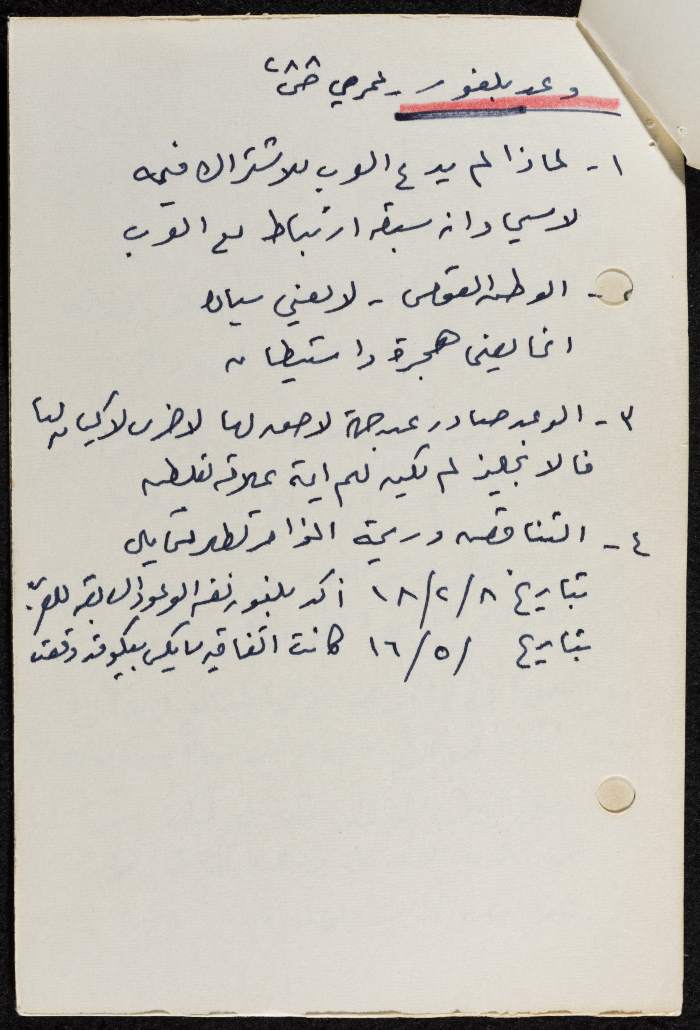 وعد بلفور - عمر صي ص ٢٨٨
١- لماذا لم يدع العرب للاشتراك فيه
لا سيما وانه سبقه ارتباط مع العرب
٢- الوطن القومي - لا يعني سيادة
انما يعني هجرة واستيطان
٣- الوعد صادر عن جهة لا حق لها لاخرى لا
فالانجليز لم تكن لهم اية علاقة بفلسطين
٤- التناقض وريحة المؤامرة تظهر
بتاريخ ١٨/٢/٨ أكد بلفور نفسه الوعود السابقة للعرب
بتاريخ /١٦/٥ كانت اتفاقية سايكس بيكو قد وقعت